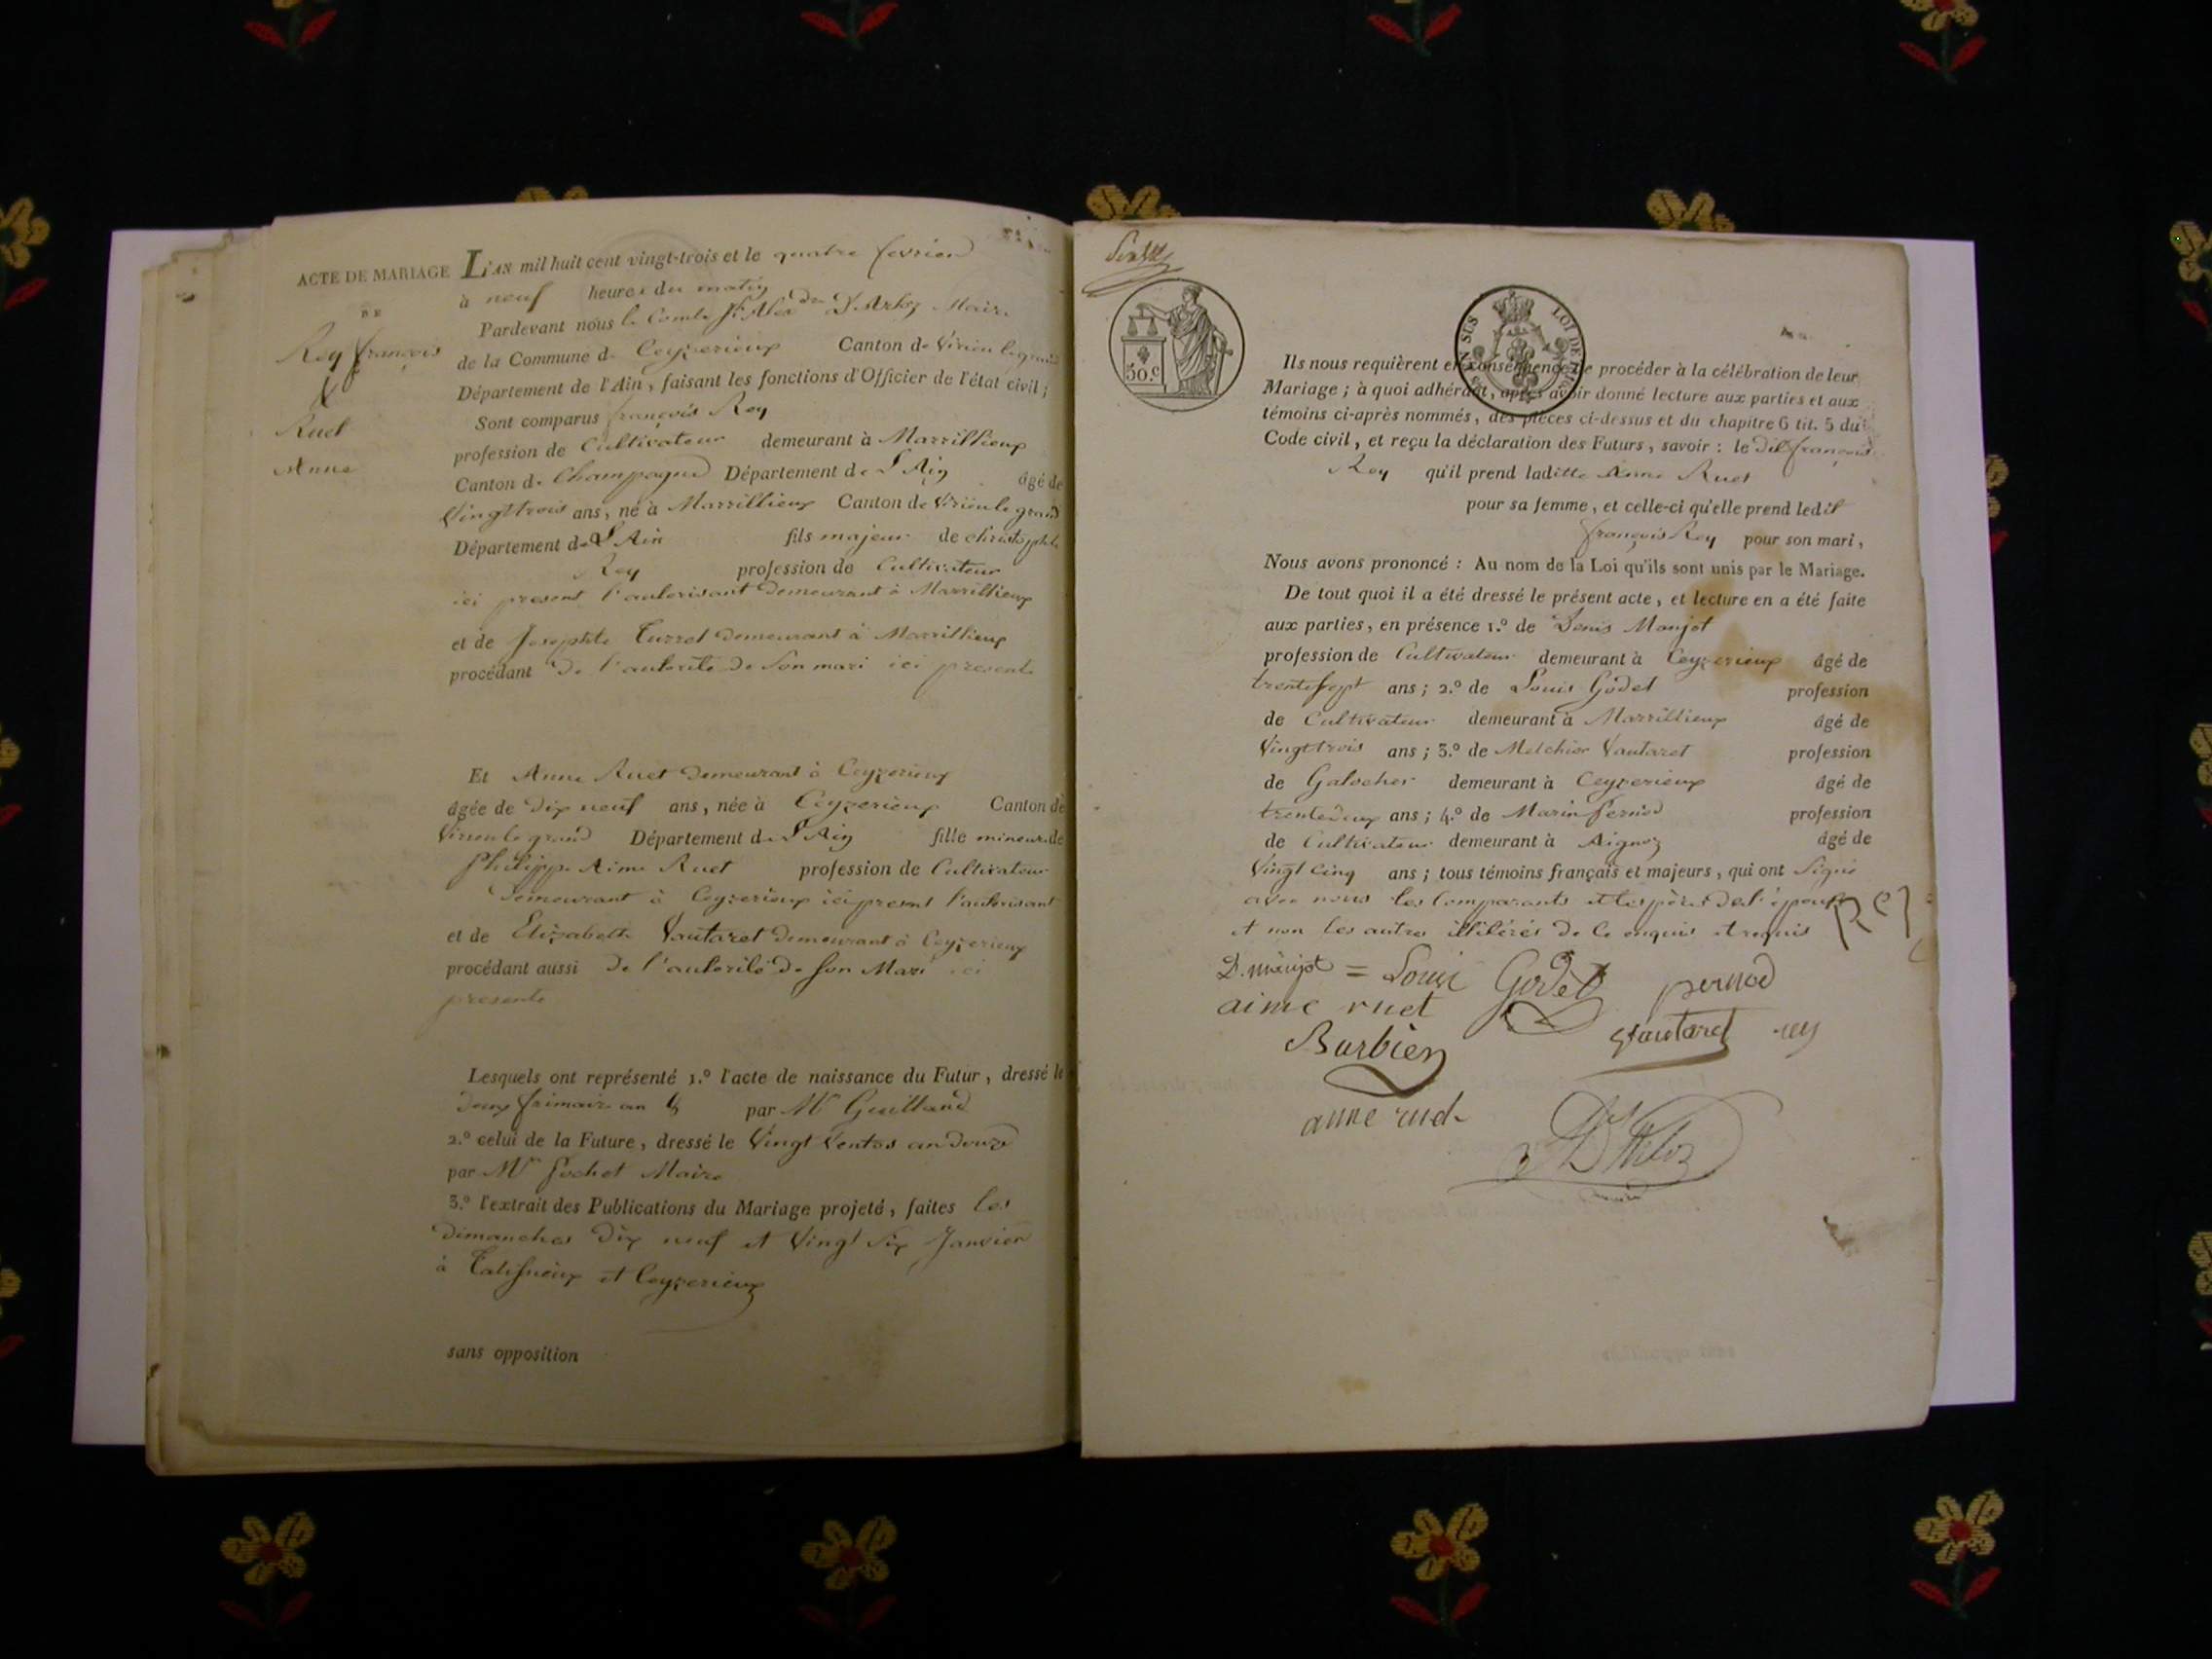 ACTE DE MARIAGE
DE
Rey françois
&
Ruet
Anne
L'AN mil huit cent vingt-trois et le quatre fevrier
à neuf heures du matin
Pardevant nous le Comte Maire
de la Commune de Ceyzerieux Canton de Virieu le grand
Département de l'Ain, faisant les fonctions d'Officier de l'état civil;
Sont comparus françois Rey
profession de Cultivateur demeurant à Marrillieux
Canton de Champagne Département de L'Ain âgé de
Vingttrois ans, né à Marrillieux Canton de Virieu le grand
Département de L'Ain fils majeur de christophe
Rey profession de Cultivateur
ici present l'autorisant demeurant à Marrillieux
et de Josephte Turrel demeurant à Marrillieux
procédant de l'autorité de Son mari ici presente
Et Anne Ruet demeurant à Ceyzerieux
âgée de dix neuf ans, née à Ceyzerieux Canton de
Virieu le grand Département de L'Ain fille mineure de
Philippe Aimé Ruet profession de Cultivateur
demeurant à Ceyzerieux ici present l'autorisant
et de Elizabeth Vautaret demeurant à Ceyzerieux
procédant aussi de l'autorité de Son Mari ici
presente
Lesquels ont représenté 1.º l'acte de naissance du Futur, dressé le
deux frimaire an par Mr Guilland
2.º celui de la Future, dressé le Vingt Ventos an douze
par Mr Pochet Maire
3.º l'extrait des Publications du Mariage projeté, faites les
dimanches dix neuf et Vingt Six Janvier
à Talissieux et Ceyzerieux
sans opposition
50.c
EN SUS LOI DE 1816
Ils nous requièrent en conséquence de procéder à la célébration de leur
Mariage; à quoi adhérant, après avoir donné lecture aux parties et aux
témoins ci-après nommés, des pièces ci-dessus et du chapitre 6 tit. 5 du
Code civil, et reçu la déclaration des Futurs, savoir: le dit françois
Rey qu'il prend laditte Anne Ruet
pour sa femme, et celle-ci qu'elle prend ledit
françois Rey pour son mari,
Nous avons prononcé: Au nom de la Loi qu'ils sont unis par le Mariage.
De tout quoi il a été dressé le présent acte, et lecture en a été faite
aux parties, en présence 1.º de Denis Monjot
profession de Cultivateur demeurant à Ceyzerieux âgé de
trente sept ans; 2.º de Louis Godet profession
de Cultivateur demeurant à Marrillieux âgé de
Vingttrois ans; 3.º de Melchior Vautaret profession
de Galocher demeurant à Ceyzerieux âgé de
trentedeux ans; 4.º de Marin Pernod profession
de Cultivateur demeurant à Aignoz âgé de
Vingt Cinq ans; tous témoins français et majeurs, qui ont Signé
avec nous les Comparants et les pères de l'épouse
et non les autres illitérés de Ce enquis et requis
Rey
D. monjot = Louis Godet pernod
aime ruet
Barbier Vautaret rey
anne ruet